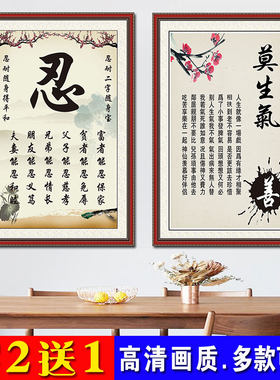 忍
忍耐二字隨身寶
忍耐隨身得平和
富者能忍保家
貧者能忍免辱
父子能忍慈孝
兄弟能忍情長
朋友能忍义篤
夫妻能忍和睦
莫生氣
善
人生就像一場戲 因爲有緣才相聚
相扶到老不容易 是否更該去珍惜
爲了小事發脾氣 回頭想想又何必
別人生氣我不氣 氣出病來無人替
我若氣死誰如意 况且傷神又費力
鄰居親朋不要比 兒孫瑣事由他去
吃苦享樂在一起 神仙羨慕好伴侶
2送1 高清画质.多款